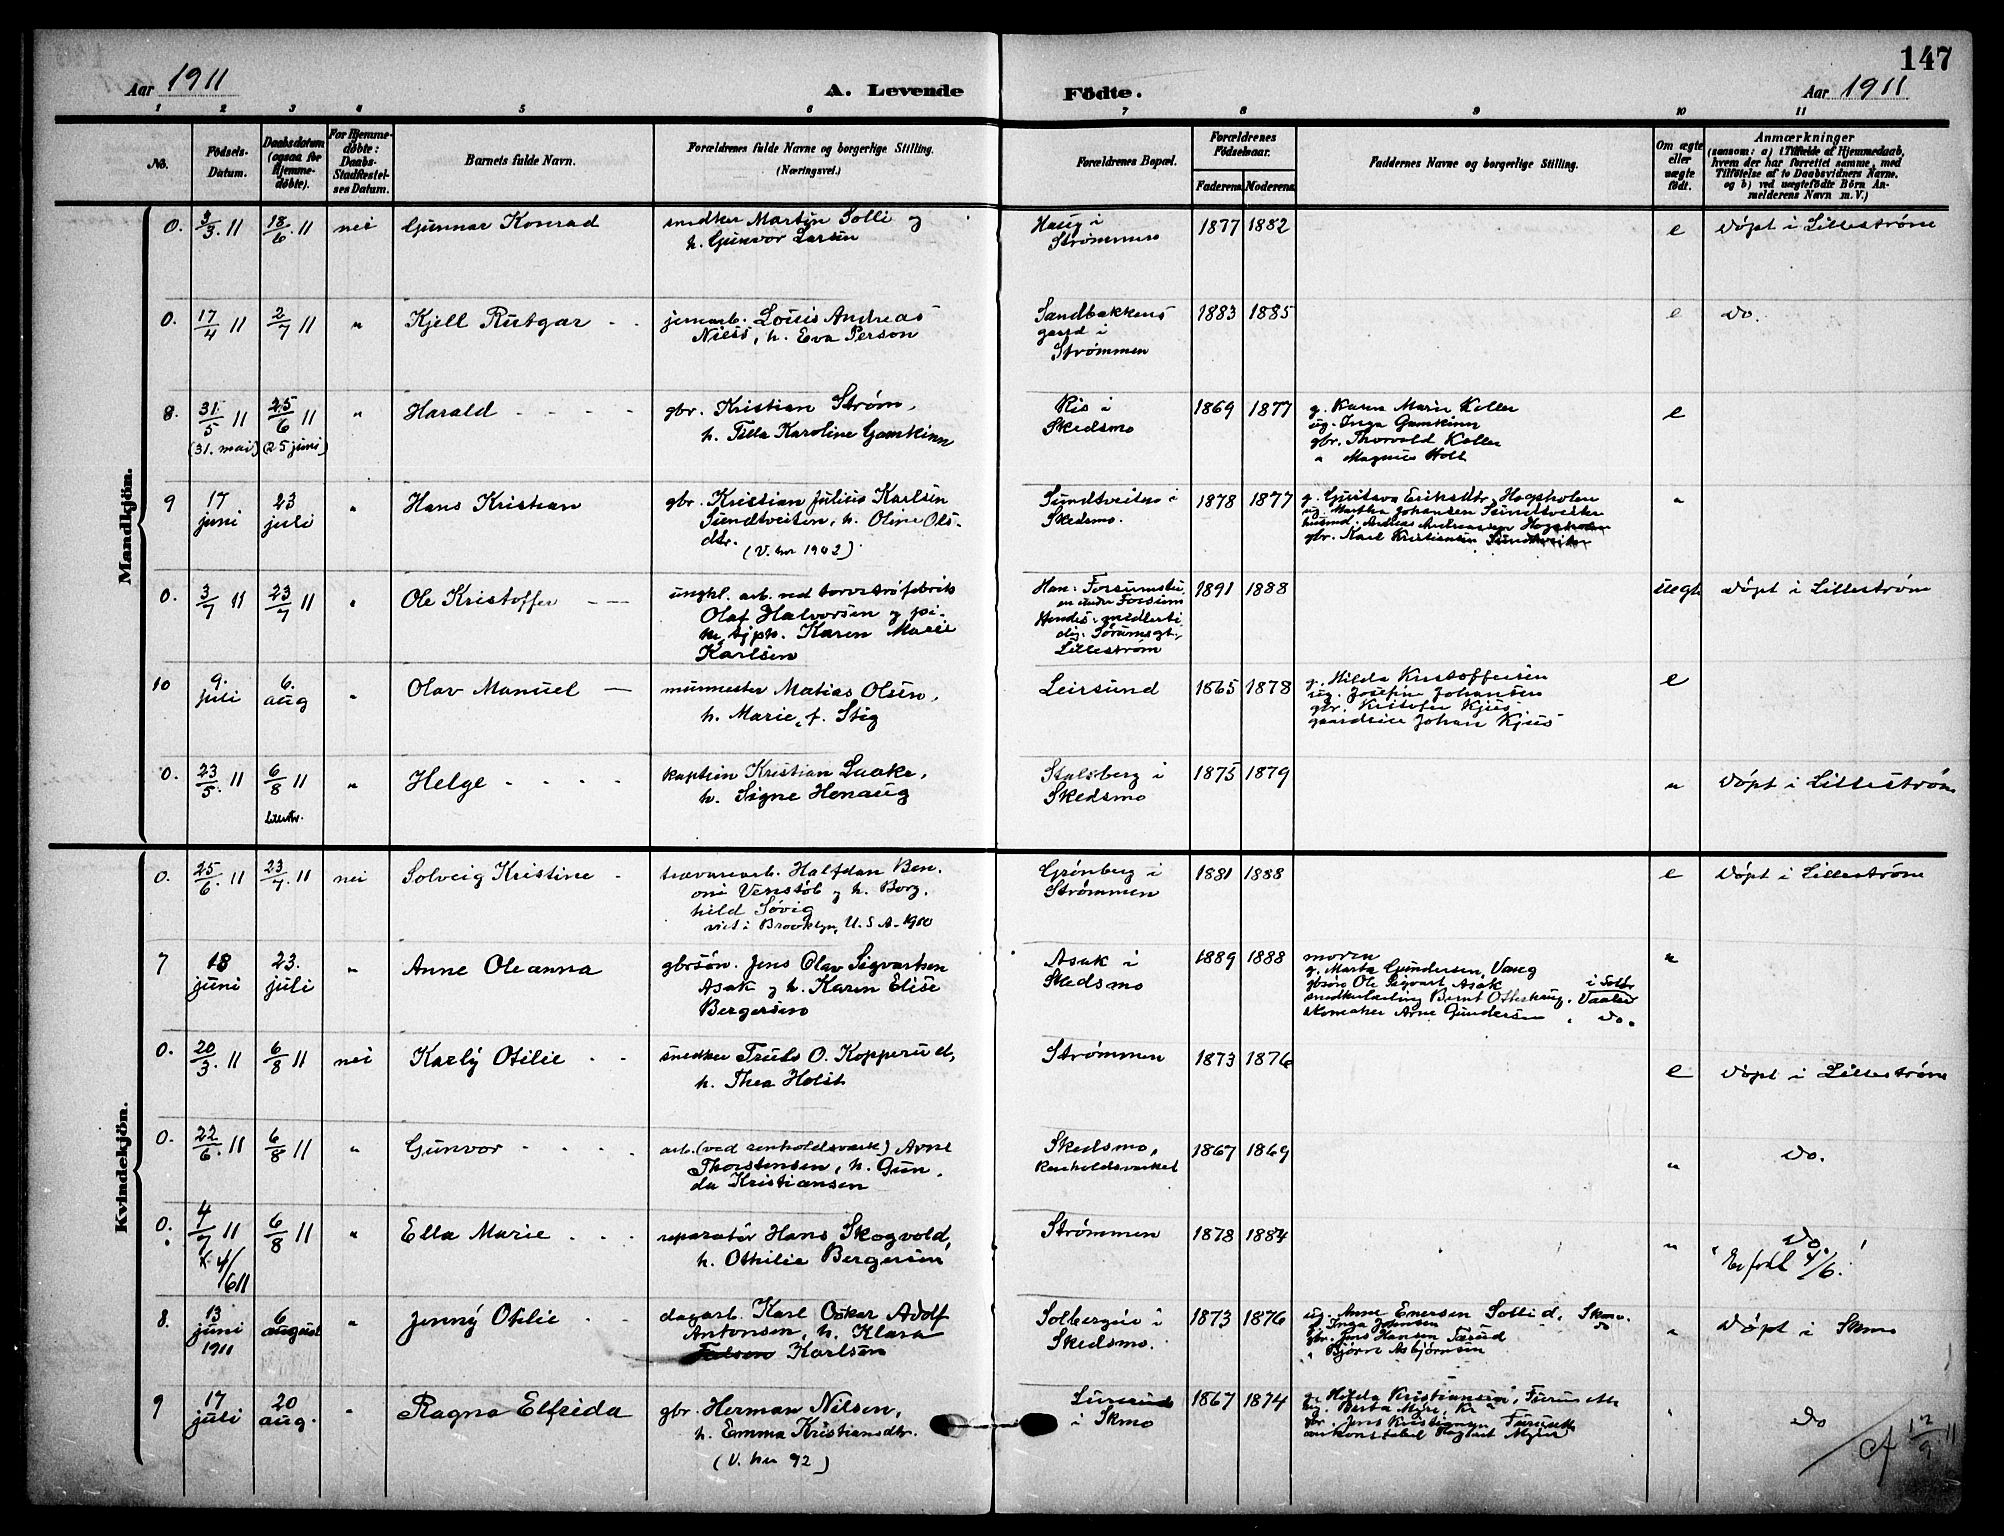 147
Aar 1911
A. Levende
Födte.
Aar 1911
1 2 3 4 5 6 7 8 9 10 11
No.
Födsels-Datum.
Daabsdatum (ogsaa for Hjemme-döbte).
For Hjemme-döbte: Daabs-Stadfæstelses Datum.
Barnets fulde Navn.
Forældrenes fulde Navne og borgerlige Stilling. (Næringsvei.)
Forældrenes Bopæl.
Forældrenes Födselsaar.
Faderens. Moderens.
Faddernes Navne og borgerlige Stilling.
Om ægte eller uægte födt.
Anmærkninger
(saasom: a) i Tilfælde af Hjemmedaab, hvem der har forrettet samme, med Tilföielse af to Daabsvidners Navne, og b) ved uægtefödte Börn Anmelderens Navn m. V.)
Mandkjön.
0. 3/3 11 18/6 11 nei Gunnar Konrad
snedker Martin Solli og
h. Gunvor Larsen
Haug i
Strømmen
1877 1882 e Døpt i Lillestrøm
0. 17/4 11 2/7 11 " Kjell Rutgar
jernarb. Louis Andreas
Niels, h. Eva Person
Sandbakkens
gaard i
Strømmen
1883 1885 e Do.
8. 31/5 11 25/6 11 " Harald
(31. mai) (25 juni)
gbr. Kristian Strøm,
h. Tilla Karoline Gamkinn
Ris i
Skedsmo
1869 1877
g. Karen Marie Koller
ug. Inga Gamkinn
gbr. Thorvald Koller
" Magnus Holt
e
9 17 juni 23 juli " Hans Kristian
gbr. Kristian Julius Karlsen
Sundtveiten, h. Oline Ols-
dtr. (V. her 1902)
Sundtveiten i
Skedsmo.
1878 1877
g. Gustava Eriksdtr. Hogsholen
ug. Martha Johansen Sundtveiten
husmd. Andreas Andreassen Hogsholen
gbr. Karl Kristiansen Sundtveiten
"
0. 3/7 11 23/7 11 " Ole Kristoffer
ungkl. arb. ved torvstrøfabrik
Olaf Halvorsen og pi-
ke, tjph. Karen Marie
Karlsen
Han: Forsumstu-
en under Forsum
Hendes: midlerti-
dig. Sørumsgt.,
Lillestrøm
1891 1888 uegte Døpt i Lillestrøm
10 9. juli 6. aug " Olav Manuel
murmester Matias Olsen,
h. Marie, f. Stig
Leirsund
1865 1878
g. Hilda Kristoffersen
ug. Josefine Johansen
gbr. Kristofer Kjus
gaardeier Johan Kjus
e
0. 23/5 11 6/8 11 " Helge
Lillestr.
kaptein Kristian Laake,
h. Signe Henaug
Stalsberg i
Skedsmo
1875 1879 " Døpt i Lillestrøm
Kvindekjön.
0. 25/6 11 23/7 11 nei Solveig Kristine
trævarearb. Halfdan Ben-
oni Venstøb og h. Borg-
hild Søvig
viet i Brooklyn, U.S.A. 1910
Grønberg i
Strømmen
1881 1888 e Døpt i Lillestrøm
7 18 juni 23. juli " Anne Oleanna
gbrsøn. Jens Olav Sigvartsen
Asak og h. Karen Elise
Bergersen
Asak i
Skedsmo
1889 1888
moren
g. Marta Gundersen, Vang
gbsøn Ole Sigvart Asak i Solør
snedkerlærling Bernt Otterhaug, Vaaler
skomaker Arne Gundersen " Do.
"
0. 20/3 11 6/8 11 nei Karly Otilie
snedker Truls O. Kopperud,
h. Thea Holst
Strømmen
1873 1876 e Døpt i Lillestrøm
0. 22/6 11 6/8 11 " Gunvor
arb. (ved renholdsværk) Arne
Thorstensen, h. Gun-
da Kristiansen
Skedsmo,
Renholdsverket
1867 1869 " Do.
0. 4/7 11 6/8 11 " Ella Marie
4/6 11
reparatør Hans Skogvold,
h. Othilie Bergersen
Strømmen
1878 1884 " Do.
Er født 4/6!
8. 13 juni 1911 6 august " Jenny Otilie
dagarb. Karl Oskar Adolf
Antonsen, h. Klara
Karlsen
Solbergeie i
Skedsmo.
1873 1876
ug. Anne Enersen Sollid, Skmo.
g. Inga Johnsen Do
gbr. Jens Hansen Tærud
" Bjørn Asbjørnsen
" Døpt i Skmo
9 17 juli 20 aug. " Ragna Elfrida
gbr. Herman Nilsen,
h. Emma Kristiansdtr.
(V. her 92)
i Skmo
1867 1874
g. Hilda Kristiansen, Furuseth
ug. Berta Myre, Kr.a
gbr. Jens Kristiansen Furuseth
" Do
cf 12/9 11